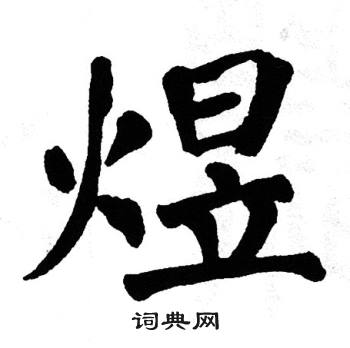 煜
词典网